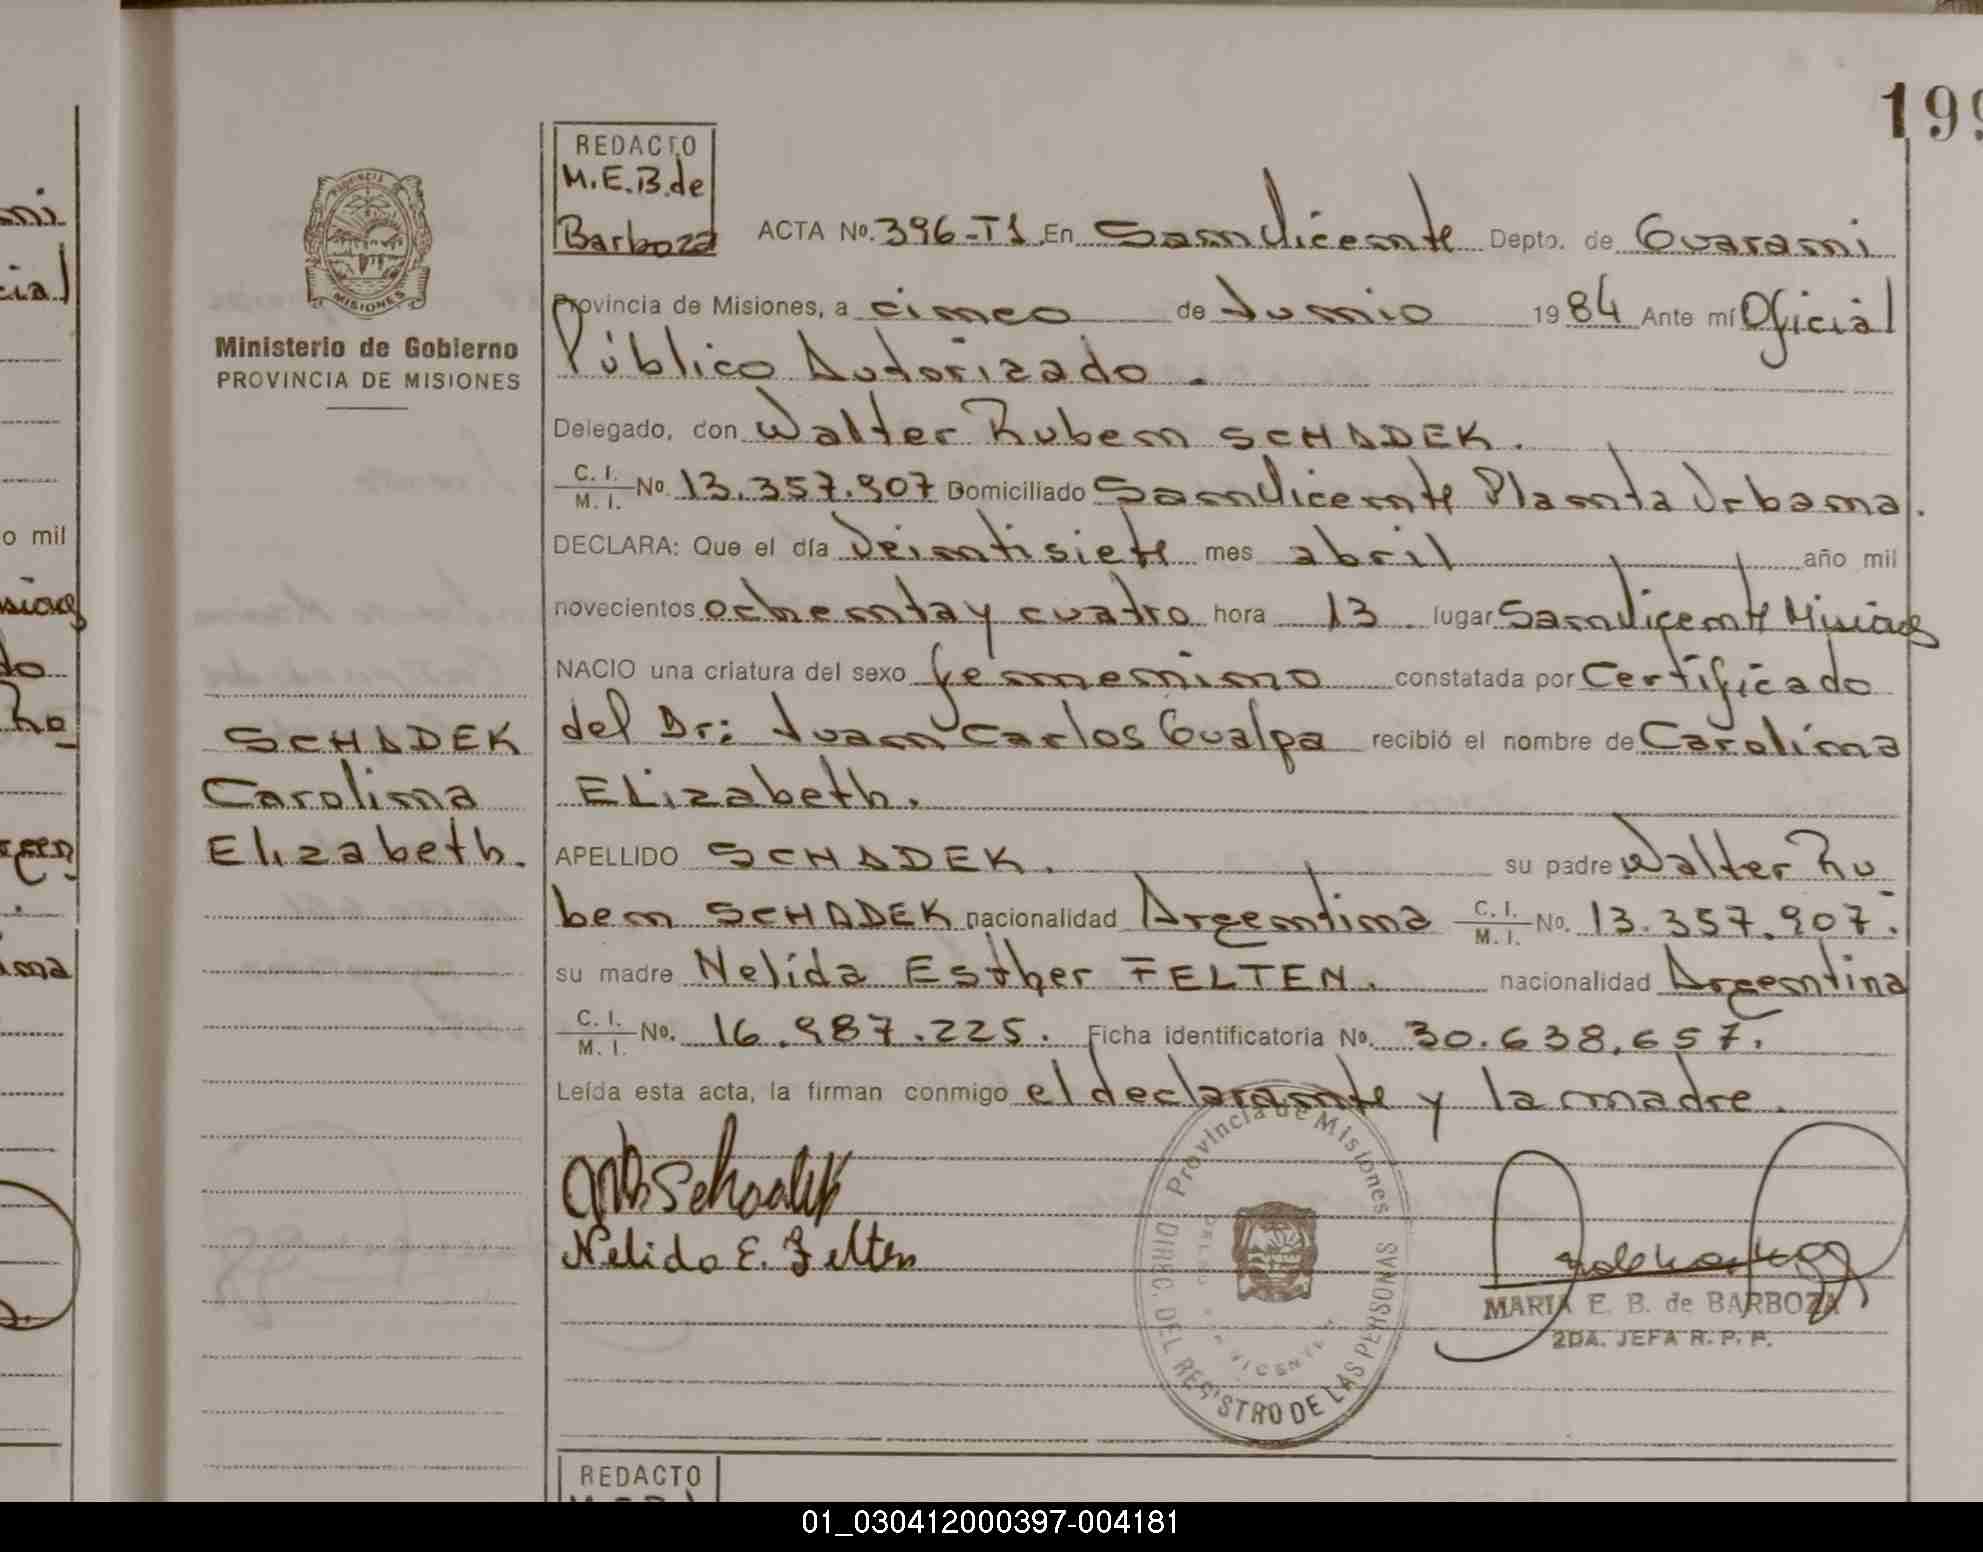 199
REDACTO
M.E.B.de
Barboza
PROVINCIA
MISIONES
Ministerio de Gobierno
PROVINCIA DE MISIONES
ACTA No. 396-T1 En San Vicente Depto. de Guarani
Provincia de Misiones, a cinco de Junio 1984 Ante mí Oficial
Público Autorizado.
Delegado, don Walter Ruben SCHADEK.
C. I. / M. I. No. 13.357.907 Domiciliado San Vicente Planta Urbana.
DECLARA: Que el día Veintisiete mes abril año mil
novecientos ochenta y cuatro hora 13 lugar San Vicente Misiones
NACIO una criatura del sexo femenino constatada por Certificado
del Dr: Juan Carlos Gualpa recibió el nombre de Carolina
Elizabeth.
APELLIDO SCHADEK. su padre Walter Ru
ben SCHADEK nacionalidad Argentina C. I. / M. I. No. 13.357.907.
su madre Nelida Esther FELTEN. nacionalidad Argentina
C. I. / M. I. No. 16.987.225. Ficha identificatoria No. 30.638.657.
Leída esta acta, la firman conmigo el declarante y la madre.
SCHADEK
Carolina
Elizabeth.
Nelida E. Felten
Provincia de Misiones
DIREC. DEL REGISTRO DE LAS PERSONAS
VICENTE
MARIA E. B. de BARBOZA
2DA. JEFA R. P. P.
REDACTO
o mil
01_030412000397-004181